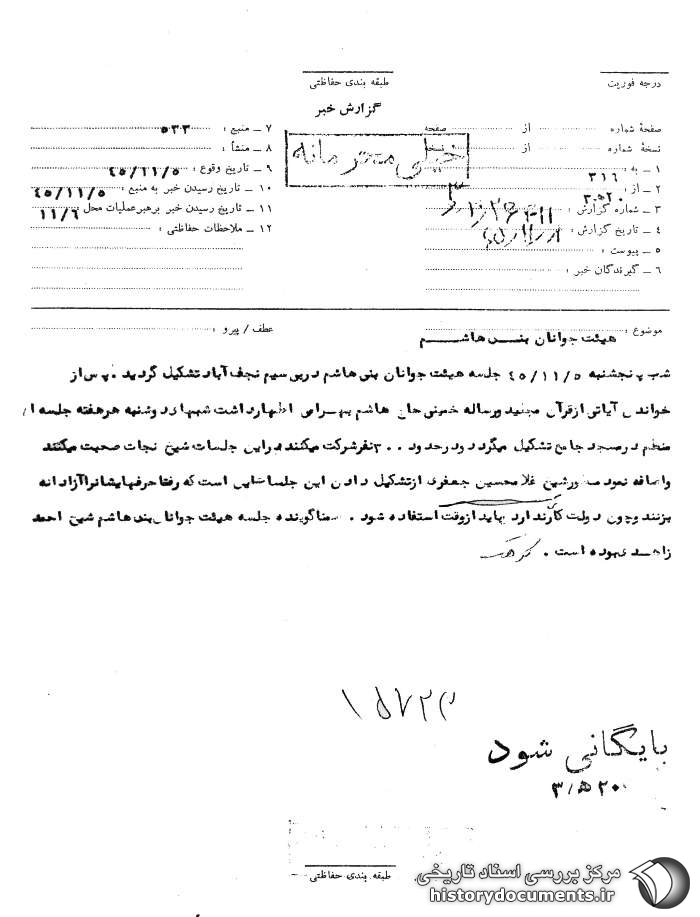 طبقه بندی حفاظتی
درجه فوریت
گزارش خبر
صفحهٔ شماره از صفحه
نسخهٔ شماره از نسخه
خیلی محرمانه
۱ ــ به : ۳۱۶
۲ ــ از : ۲۰ﻫ۳
۳ ــ شماره گزارش :
۴ ــ تاریخ گزارش :
۵ ــ پیوست :
۶ ــ گیرندگان خبر :
۷ ــ منبع : ۵۳۳
۸ ــ منشأ :
۹ ــ تاریخ وقوع : ۴۵/۱۱/۵
۱۰ ــ تاریخ رسیدن خبر به منبع : ۴۵/۱۱/۵
۱۱ ــ تاریخ رسیدن خبر برهبرعملیات محل : ۱۱/۶
۱۲ ــ ملاحظات حفاظتی :
موضوع : هیئت جوانان بنی هاشم
عطف / پیرو :
شب پنجشنبه ۴۵/۱۱/۵ جلسه هیئت جوانان بنی هاشم دربی سیم نجف آباد تشکیل گردید . پس از
خواندن آیاتی از قرآن مجید ورساله خمینی هاشم اظهارداشت شبهای دوشنبه هرهفته جلسه ای
منظم درمسجد جامع تشکیل میگردد ودرحدود ۳۰۰ نفرشرکت میکنند دراین جلسات شیخ نجات صحبت میکنند
واضافه نمود منظورشیخ غلامحسین جعفری ازتشکیل دادن این جلسات این است که رفقا حرفهایشانراآزادانه
بزنند وچون دولت کارندارد بیاید ازوقت استفاده شود . ضمناگوینده جلسه هیئت جوانان بنی هاشم شیخ احمد
زاهدی بوده است .
۱۵۷۲۳
بایگانی شود
۲۰ﻫ/۳
طبقه بندی حفاظتی
مرکز بررسی اسناد تاریخی
historydocuments.ir